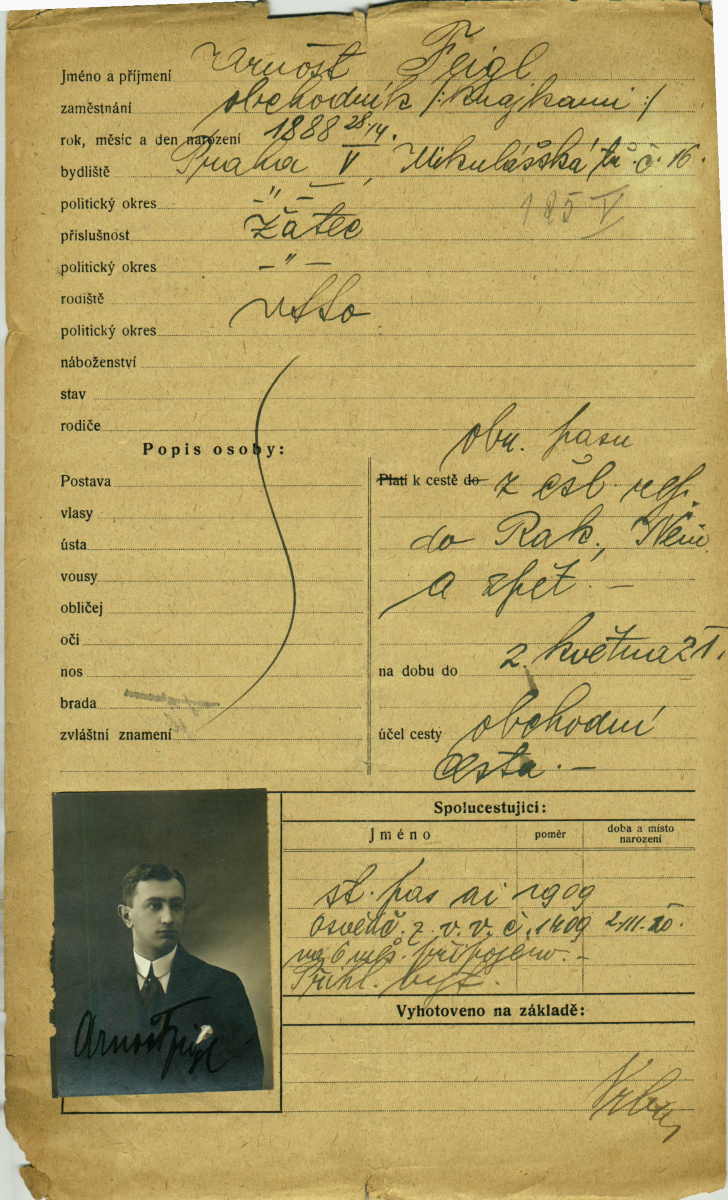 Jméno a příjmení Arnošt Feigl
zaměstnání obchodník /: krajkami :/
rok, měsíc a den narození 1888 28./4.
bydliště Praha V, Mikulášská tř. č. 16.
politický okres – " –
125 V
příslušnost Žatec
politický okres – " –
rodiště
politický okres
náboženství
stav
rodiče
Popis osoby:
Postava
vlasy
ústa
vousy
obličej
oči
nos
brada
zvláštní znamení
obn. pasu
Platí k cestě do z čsl. rep.
do Rak., Něm.
a zpět. –
na dobu do 2. května 21.
účel cesty obchodní
cesta. –
Spolucestující:
Jméno poměr doba a místo narození
st. pas ai 1909
Osvědč. z. v. v. č. 1409 2.III.20.
na 6 měs. připojeno. –
Přihl. byt.
Vyhotoveno na základě:
Arnošt Feigl